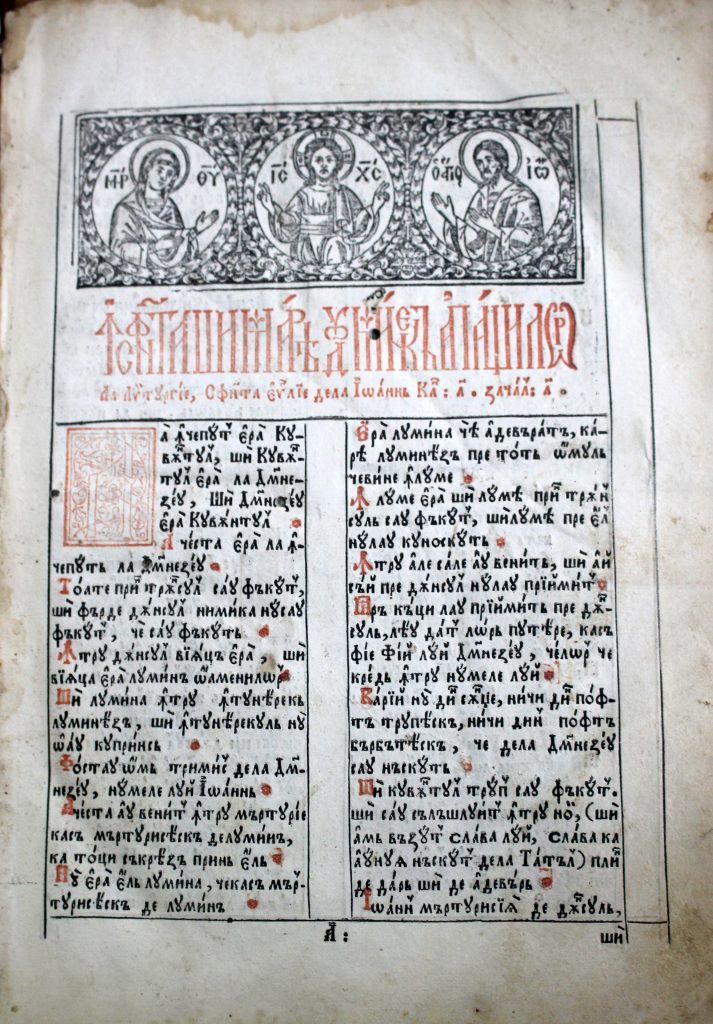 МР ѲУ
ІС ХС
ѺАГІОС ІѠ
ꙞСФН҃ТА ШИ МАРѢ ДꙋМИНЕКЪ А ПАЩИЛѠР
Ла Лѵтургіе, Сфн҃та Єѵліе дела Іѡаннь Ка҃: а҃. Зачал: а҃.
а ꙟчепут є҆ра Ку-
вѫнтул, ши Кувѫн-
тул є҆ра ла Дмⷩ҇е-
зеу, Ши Дмⷩ҇езеу
є҆ра Кувѫнтул
Ачеста є҆ра ла ꙟ-
чепутъ ла Дмⷩ҇езеу
Тоате прин трѫнсул сау фъкут,
ши фърде дѫнсул нимика нусау
фъкут, че сау фъкуть
Ꙟтру дѫнсул віѧцъ є҆ра, ши
віѧца є҆ра лумин ѡ҆аменилѡр
Ши лумина ꙟтру ꙟтунѣрекъ
луминѣзъ, ши ꙟтунѣрекуль ну
ѡ҆ау купринсь
Фостау ѡ҆мь тримис дела Дмⷩ҇-
незеу, нумеле луй Іѡаннь
Ачеста ау венит ꙟтру мъртуріе
касъ мъртурисѣскъ делуминъ,
ка тоци съкрѣзъ принь єль
Ну є҆ра єль лумина, чекасъ мър-
турисѣскъ де луминъ
Єра лумина чѣ адевърать, ка-
рѣ луминѣзъ пре тоть ѡ҆муль
чевине ꙟлуме
Ꙟлуме є҆ра ши лумѣ прин трѫн-
суль сау фъкут, шилумѣ пре єл
нулау куноскуть
Ꙟтру але сале ау венить, ши ай
съй пре дѫнсул нулау прїимит
Іаръ къци лау прїимить пре дѫн-
суль, лѣу дат лѡрь путѣре, касъ
фіе Фїй луй Дмⷩ҇езеу, челѡр че
кредь ꙟтру нумеле луй
Карїй ну дин сѫнџе, ничи дин пофт-
тъ трупѣскъ, ничи дин пофтъ
бърбътѣскъ, че дела Дмⷩ҇езеу
сау нъскуть
Ши кувѫнтул труп сау фъкут.
ши сау сълъшлуит ꙟтру ной, (ши
амь възут слава луй, слава ка
аунуѧ нъскут дела Татъл) плин
де дарь ши де адевърь
Іѡанн мъртурисиѧ де дѫнсуль,
А҃:
ши